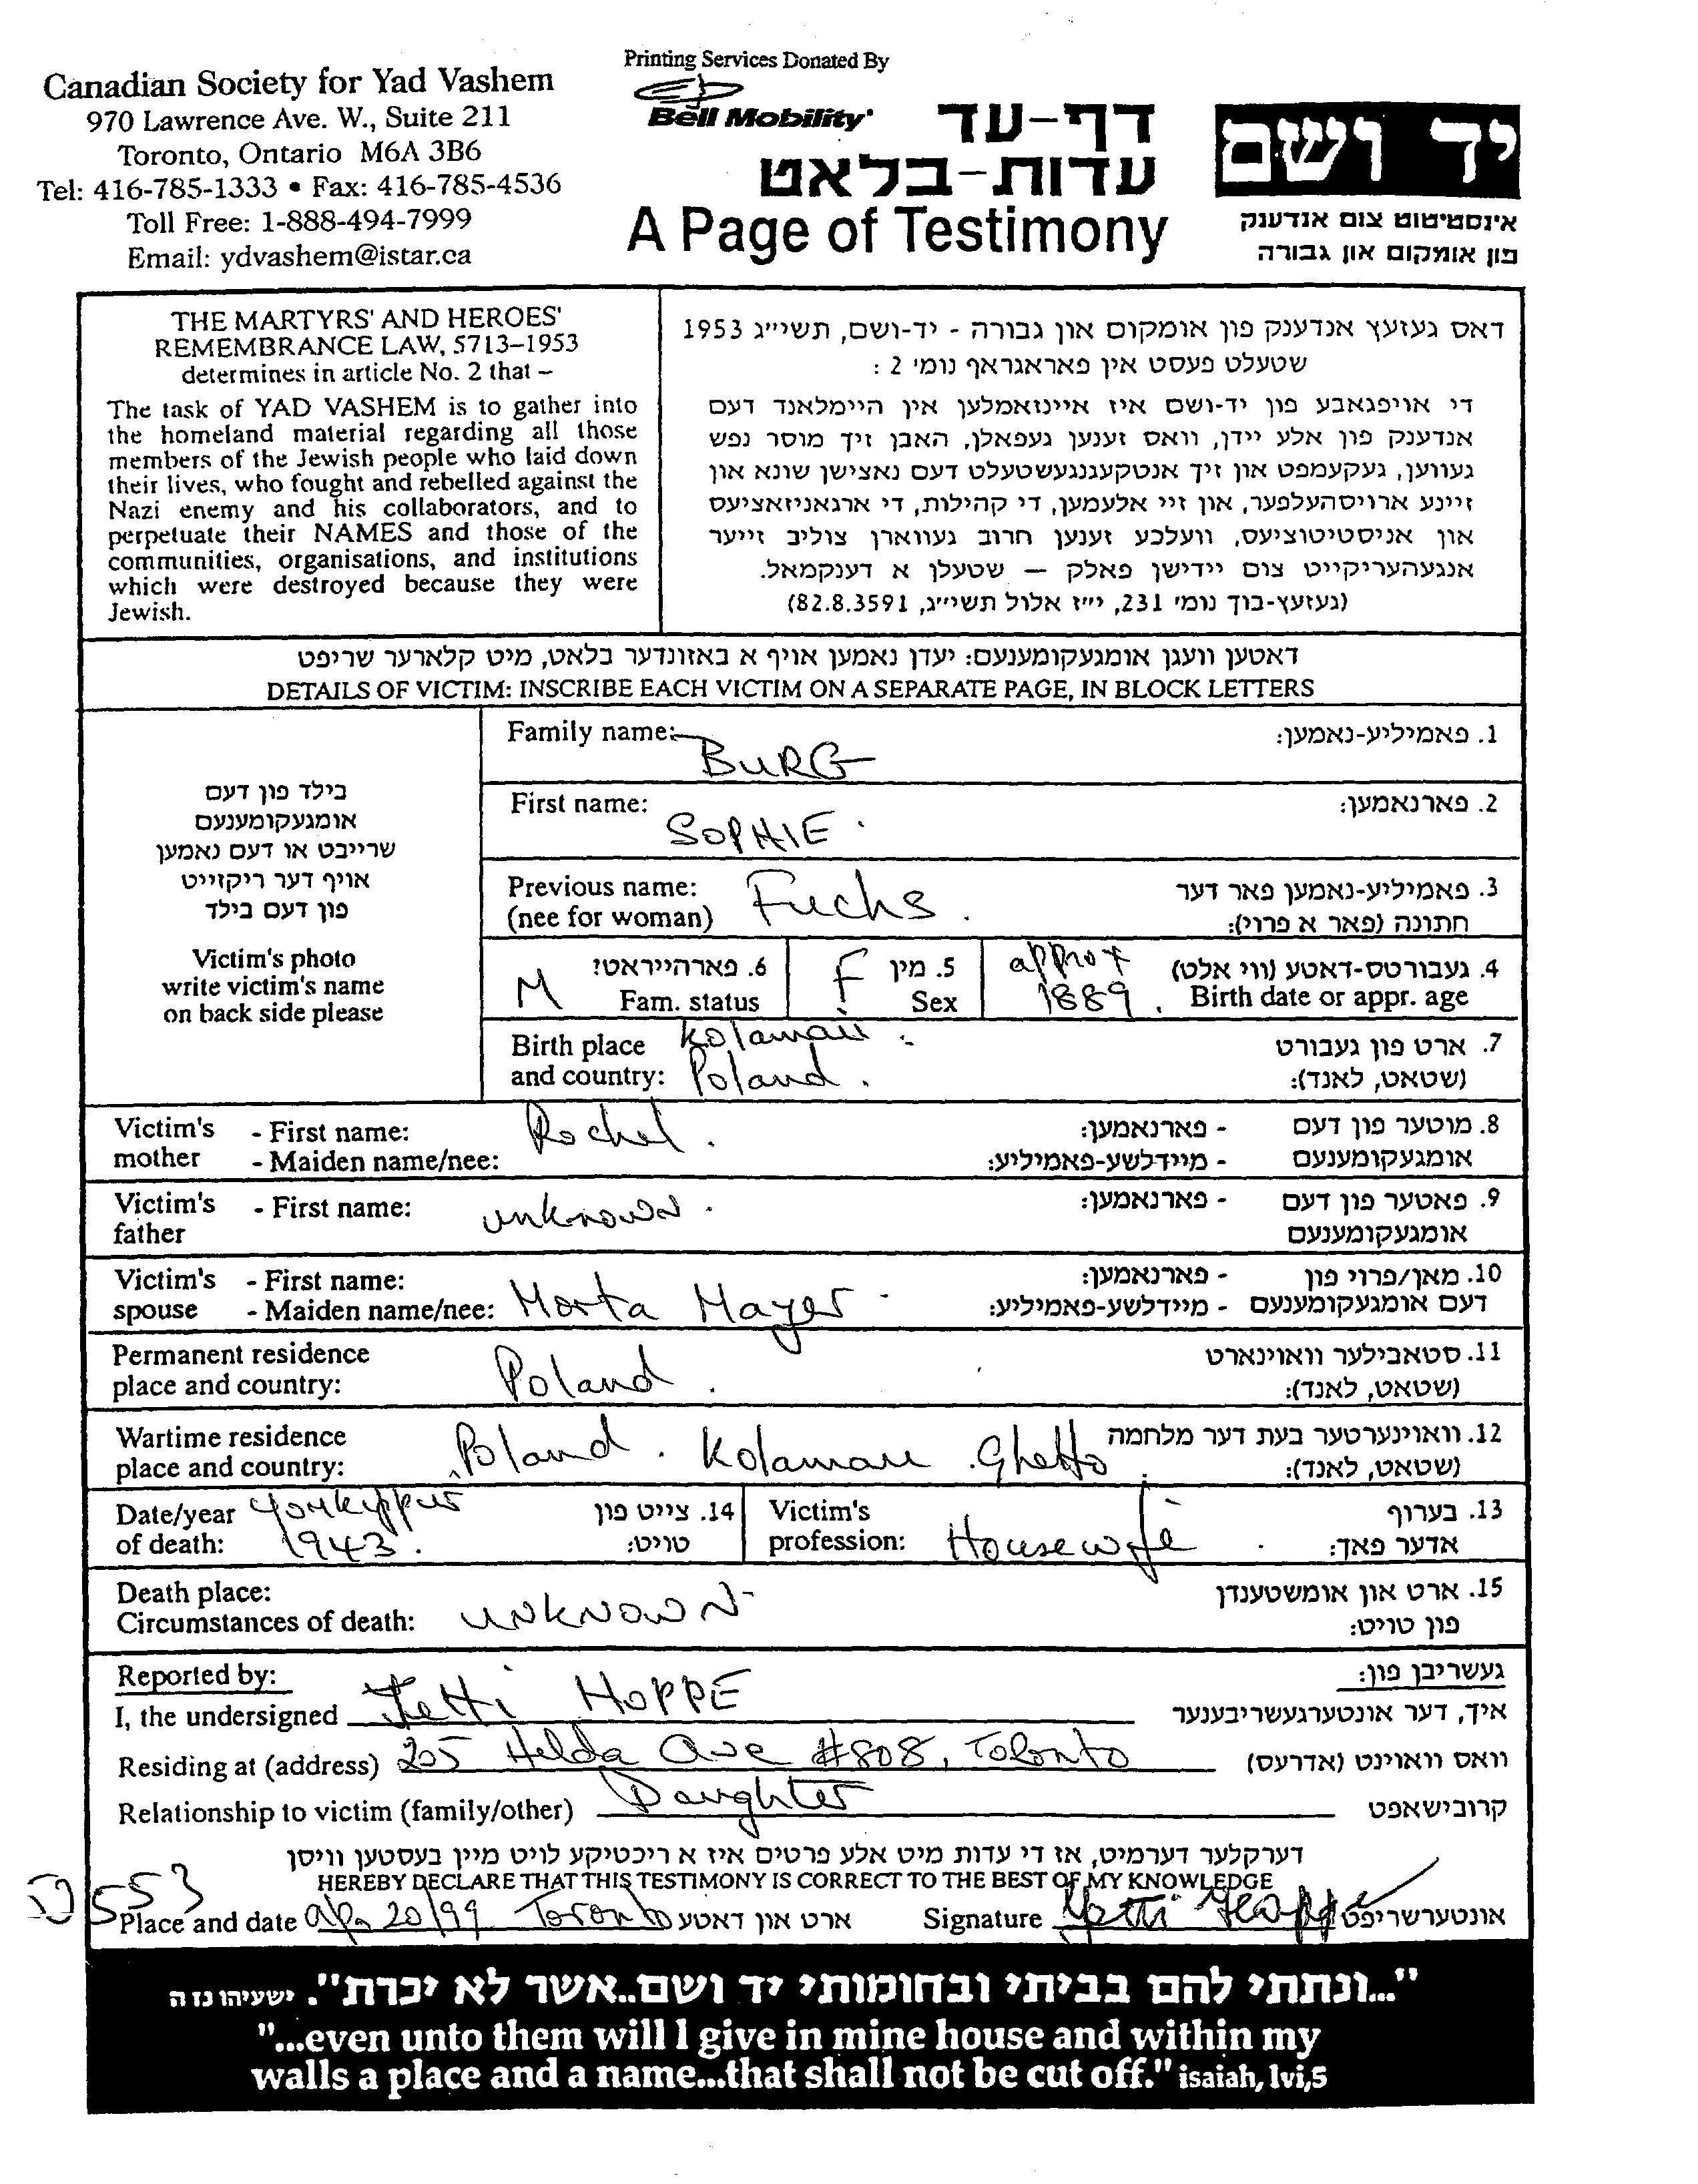 Canadian Society for Yad Vashem
970 Lawrence Ave. W., Suite 211
Toronto, Ontario M6A 3B6
Tel: 416-785-1333 • Fax: 416-785-4536
Toll Free: 1-888-494-7999
Email: ydvashem@istar.ca
Printing Services Donated By
Bell Mobility
דף-עד
עדות-בלאט
A Page of Testimony
יד ושם
אינסטיטוט צום אנדענק
פון אומקום און גבורה
THE MARTYRS' AND HEROES'
REMEMBRANCE LAW, 5713–1953
determines in article No. 2 that –
The task of YAD VASHEM is to gather into
the homeland material regarding all those
members of the Jewish people who laid down
their lives, who fought and rebelled against the
Nazi enemy and his collaborators, and to
perpetuate their NAMES and those of the
communities, organisations, and institutions
which were destroyed because they were
Jewish.
דאס געזעץ אנדענק פון אומקום און גבורה - יד-ושם, תשי״ג 1953
שטעלט פעסט אין פאראגראף נומ׳ 2 :
די אויפגאבע פון יד-ושם איז איינזאמלען אין היימלאנד דעם
אנדענק פון אלע יידן, וואס זענען געפאלן, האבן זיך מוסר נפש
געווען, געקעמפט און זיך אנטקעגנגעשטעלט דעם נאצישן שונא און
זיינע ארויסהעלפער, און זיי אלעמען, די קהילות, די ארגאניזאציעס
און אניסטיטוציעס, וועלכע זענען חרוב געווארן צוליב זייער
אנגעהעריקייט צום יידישן פאלק — שטעלן א דענקמאל.
(געזעץ-בוך נומ׳ 231, י״ז אלול תשי״ג, 82.8.3591)
דאטען וועגן אומגעקומענעם: יעדן נאמען אויף א באזונדער בלאט, מיט קלארער שריפט
DETAILS OF VICTIM: INSCRIBE EACH VICTIM ON A SEPARATE PAGE, IN BLOCK LETTERS
בילד פון דעם
אומגעקומענעם
שרייבט או דעם נאמען
אויף דער ריקזייט
פון דעם בילד
Victim's photo
write victim's name
on back side please
Family name: BURG 1. פאמיליע-נאמען:
First name: SOPHIE 2. פארנאמען:
Previous name: Fuchs 3. פאמיליע-נאמען פאר דער
(nee for woman) חתונה (פאר א פרוי):
M 6. פארהייראט? F 5. מין approx 4. געבורטס-דאטע (ווי אלט)
Fam. status Sex 1889. Birth date or appr. age
Birth place 7. ארט פון געבורט
and country: Poland. (שטאט, לאנד):
Victim's - First name: Rochel. - פארנאמען: 8. מוטער פון דעם
mother - Maiden name/nee: - מיידלשע-פאמיליע: אומגעקומענעם
Victim's - First name: unknown. - פארנאמען: 9. פאטער פון דעם
father אומגעקומענעם
Victim's - First name: - פארנאמען: 10. מאן/פרוי פון
spouse - Maiden name/nee: Morta Mayer - מיידלשע-פאמיליע: דעם אומגעקומענעם
Permanent residence 11. סטאבילער וואוינארט
place and country: Poland. (שטאט, לאנד):
Wartime residence 12. וואוינערטער בעת דער מלחמה
place and country: Poland. Ghetto (שטאט, לאנד):
Date/year Yomkippur 14. צייט פון Victim's 13. בערוף
of death: 1943. טויט: profession: Housewife אדער פאך:
Death place: 15. ארט און אומשטענדן
Circumstances of death: unknown פון טויט:
Reported by: געשריבן פון:
I, the undersigned Jetti HOPPE איך, דער אונטערגעשריבענער
Residing at (address) 205 Hilda Ave #808, Toronto וואס וואוינט (אדרעס)
Relationship to victim (family/other) Daughter קרובישאפט
דערקלער דערמיט, אז די עדות מיט אלע פרטים איז א ריכטיקע לויט מיין בעסטען וויסן
HEREBY DECLARE THAT THIS TESTIMONY IS CORRECT TO THE BEST OF MY KNOWLEDGE
553
Place and date Apr 20/99 Toronto ארט און דאטע Signature אונטערשריפט
"...ונתתי להם בביתי ובחומותי יד ושם..אשר לא יכרת". ישעיהו נז ה
"...even unto them will I give in mine house and within my
walls a place and a name...that shall not be cut off." isaiah, lvi,5